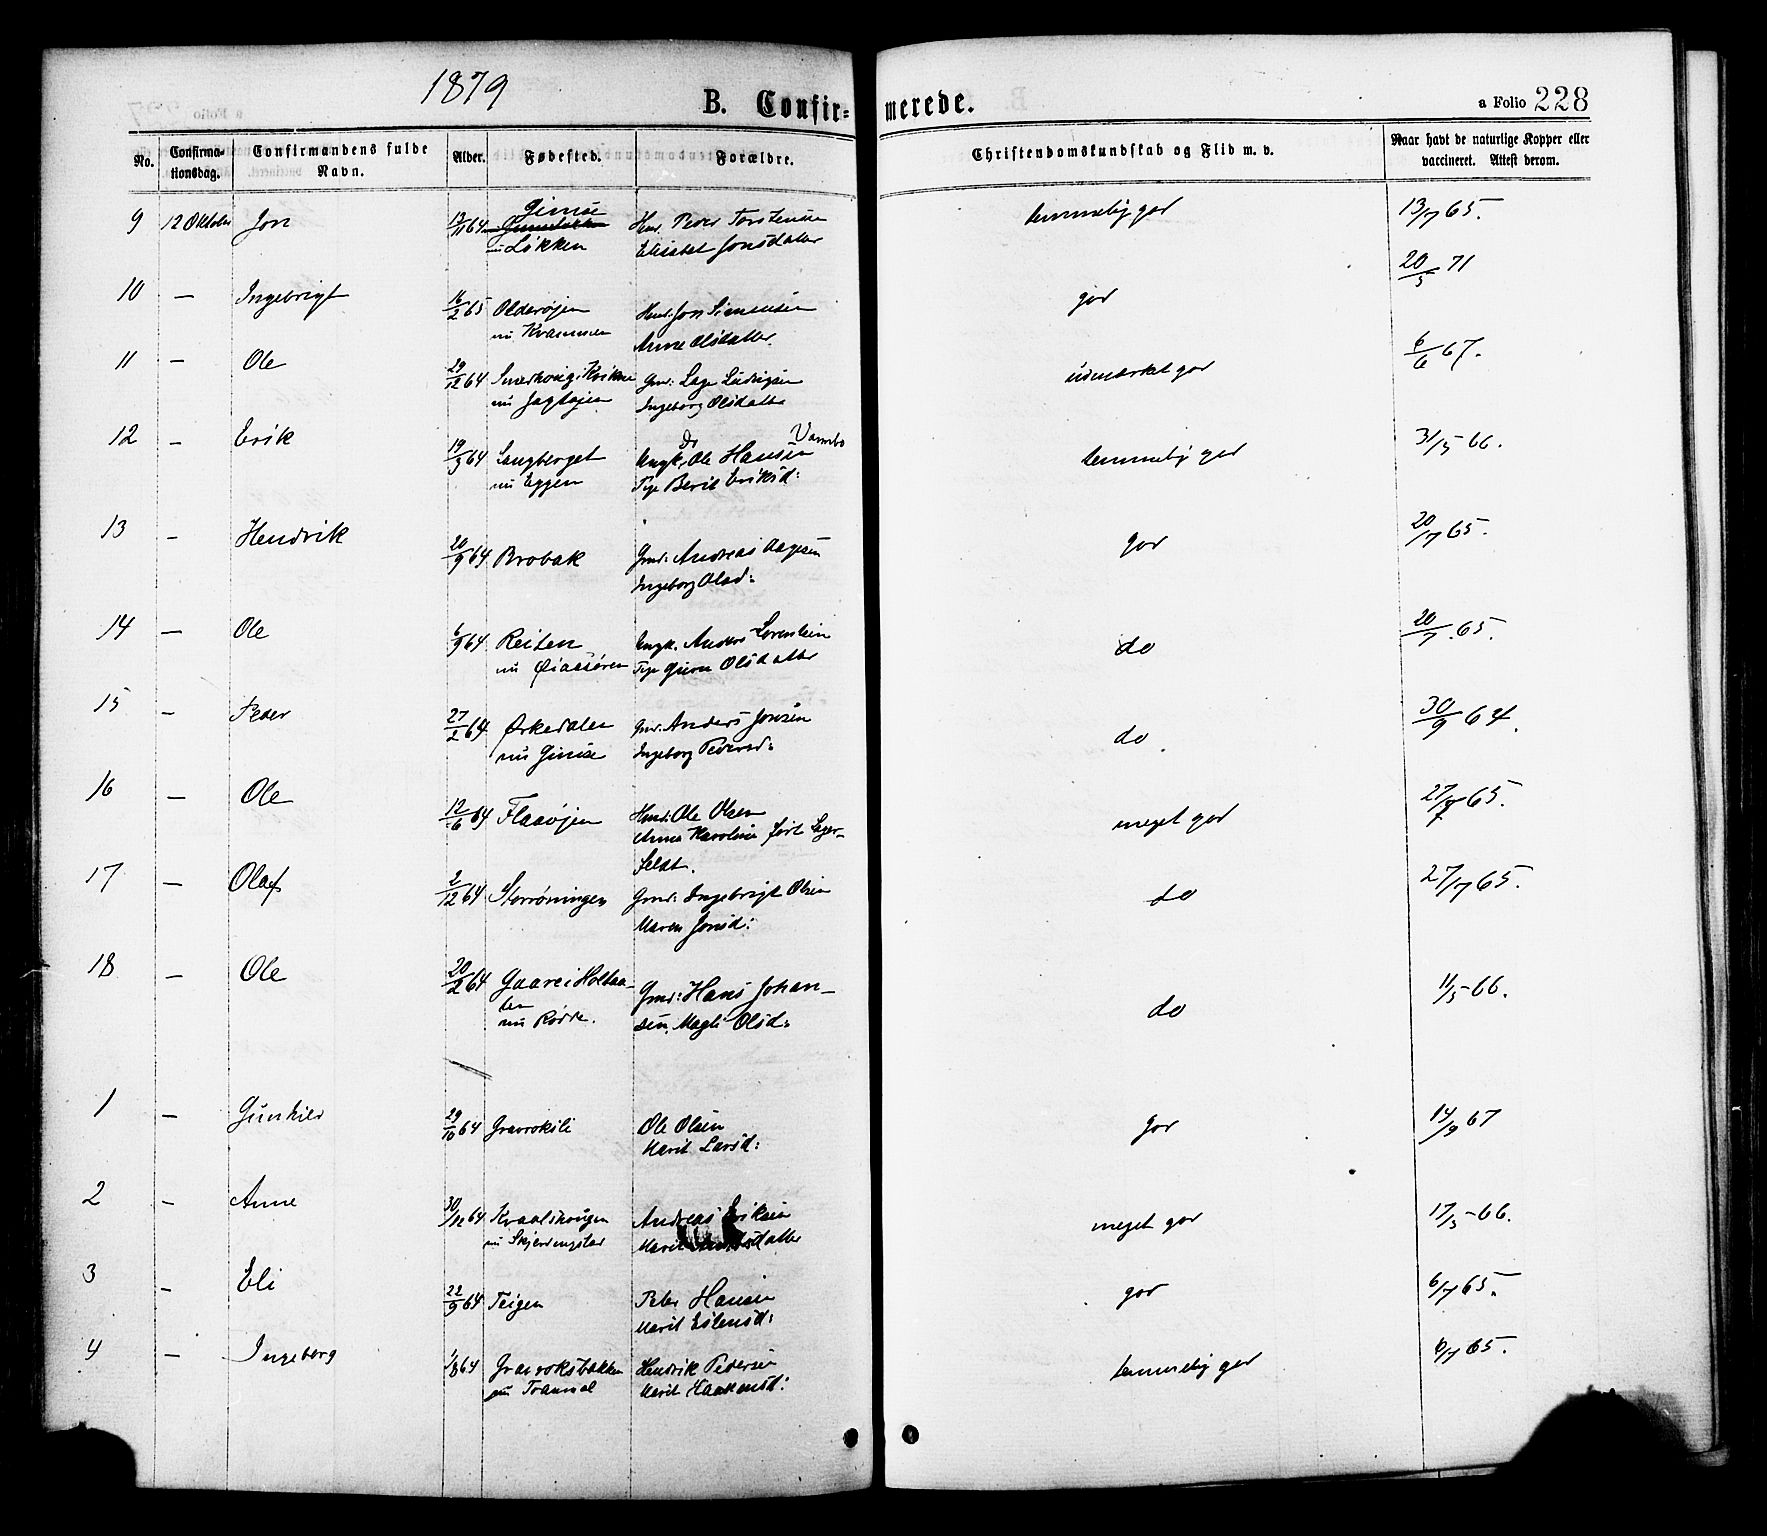 1879
B. Confir= merede.
a Folio 228
No.
Confirma-
tionsdag.
Confirmandens fulde
Navn.
Alder.
Fødested.
Forældre.
Christendomskundskab og Flid m. v.
Naar havt de naturlige Kopper eller
vaccineret. Attest derom.
9 12 Oktober Jon 12/11 64 Gimse
nu Løkken
Hmd. Peder Torstensen
Elisabet Jonsdatter
temmelig god 13/7 65.
10 — Ingebrigt 16/2 65 Olderøjen
nu Kvammen
Hmd. Jon Simensen
Anne Olsdatter.
god 20/5 71
11 — Ole 29/12 64 i Kvikne
nu Jagtøjen
Gmd: Lage Ludvigsen
Ingeborg Olsdatter
udmærket god 6/6 67.
12 — Erik 19/3 64 Langberget
nu Eggen
Ungk. Ole Hansen
Pige Berit Eriksd:
temmelig god 31/5 66.
13 — Hendrik 20/9 64 Brobak
Gmd: Andreas Aagesen
Ingeborg Olsd:
god 20/7 65.
14 — Ole 6/9 64 Reiten
nu Øiaasøren
Ungk. Anders
Pige Guru Olsdatter
do 20/7 65.
15 — Peder 27/2 64 Ørkedalen
nu Gimse
Gmd: Anders Jonsen
Ingeborg Pedersd:
do. 30/9 64.
16 — Ole 12/6 64 Flaaøjen
Hmd: Ole Olsen
Anne Karoline født Lager-
feldt.
meget god 27/7 65.
17 — Olaf 2/12 64 Storrøningen
Gmd: Ingebrigt Olsen
Maren Jonsd:
do 27/7 65.
18 — Ole 20/2 64 Gaare i Holtaa-
len
nu Rødde.
Gmd: Hans Johan-
sen, Magli Olsd:
do 11/5 66.
1 — Gunhild 29/10 64 Gravroksli
Ole Olsen
Marit Larsd:
god 14/9 67
2 — Anne 30/12 64 Kvaalshaugen
nu Skjerdingstad
Andreas Eriksen
Marit
meget god 17/5 66.
3 — Eli 22/9 64 Teigen
Peter Hansen
Marit Estensd:
god 6/7 65.
4 — Ingeborg 1/8 64 Gravroksbakken
nu Tranmæl
Hendrik Pedersen
Marit Haakensd:
temmelig god 6/7 65.